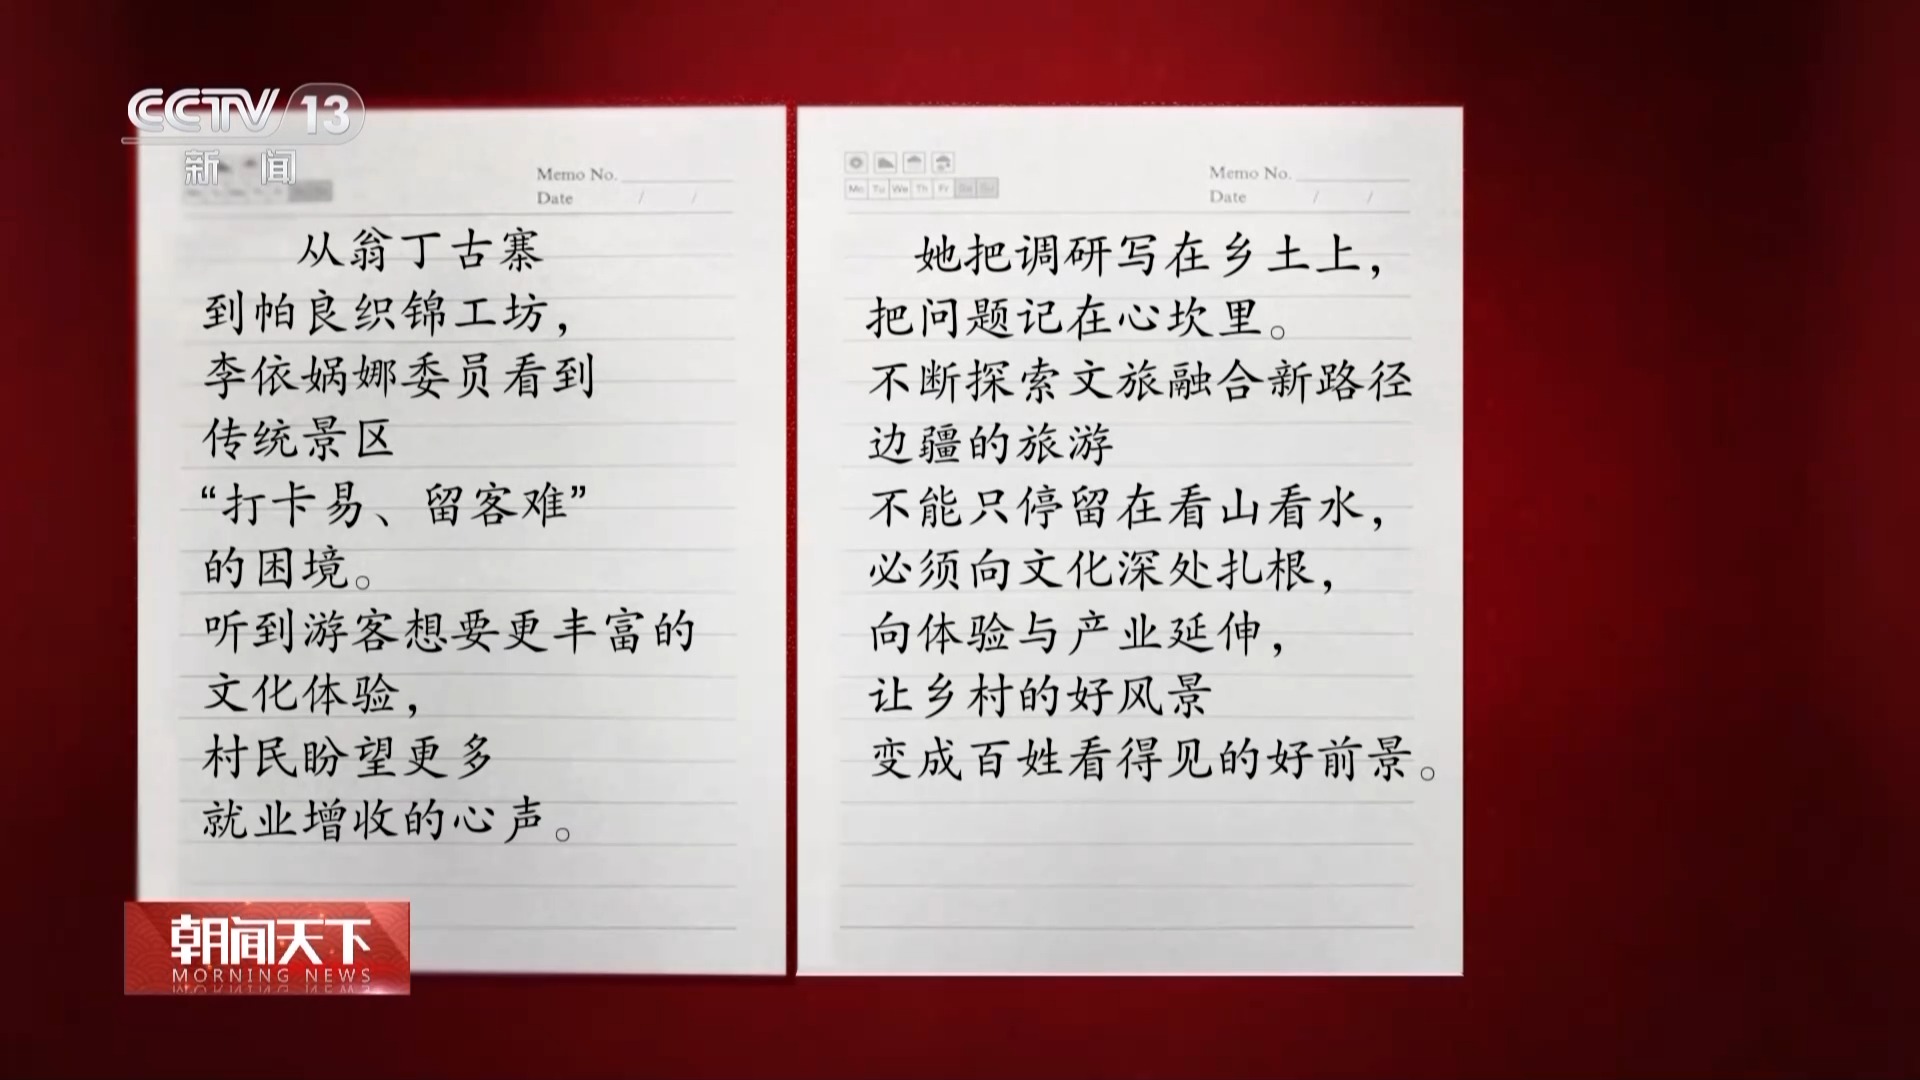 CCTV 13
新闻
Memo No.
Date / /
从翁丁古寨
到帕良织锦工坊，
李依娲娜委员看到
传统景区
“打卡易、留客难”
的困境。
听到游客想要更丰富的
文化体验，
村民盼望更多
就业增收的心声。
Memo No.
Mo Tu We Th Fr Sa Su
Date / /
她把调研写在乡土上，
把问题记在心坎里。
不断探索文旅融合新路径
边疆的旅游
不能只停留在看山看水，
必须向文化深处扎根，
向体验与产业延伸，
让乡村的好风景
变成百姓看得见的好前景。
朝闻天下
MORNING NEWS